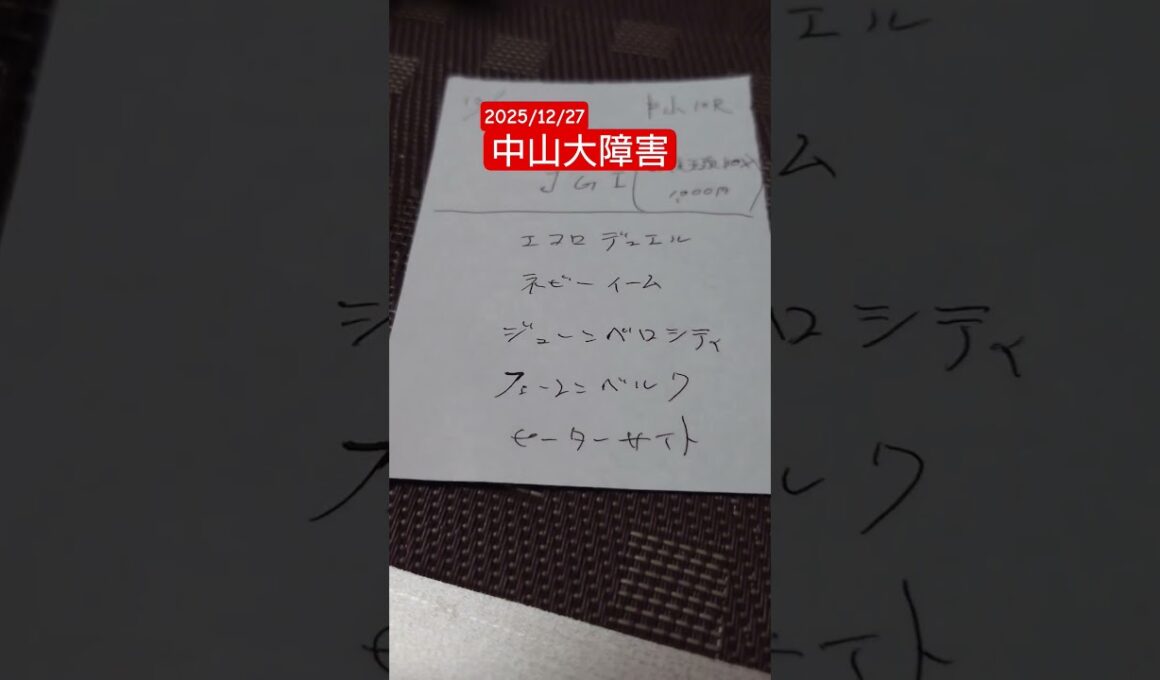 2025/12/27
中山大障害
中山10R
JGI
1,000円
エコロデュエル
ネビーイーム
ジューンベロシティ
フェーレンベルク
セーターサイト